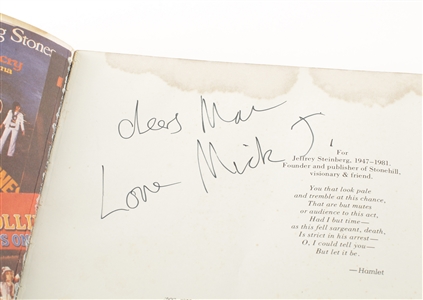 g Stones
dear Mar
Love Mick J.
For
Jeffrey Steinberg, 1947–1981.
Founder and publisher of Stonehill,
visionary & friend.
You that look pale
and tremble at this chance,
That are but mutes
or audience to this act,
Had I but time—
as this fell sergeant, death,
Is strict in his arrest—
O, I could tell you—
But let it be.
—Hamlet